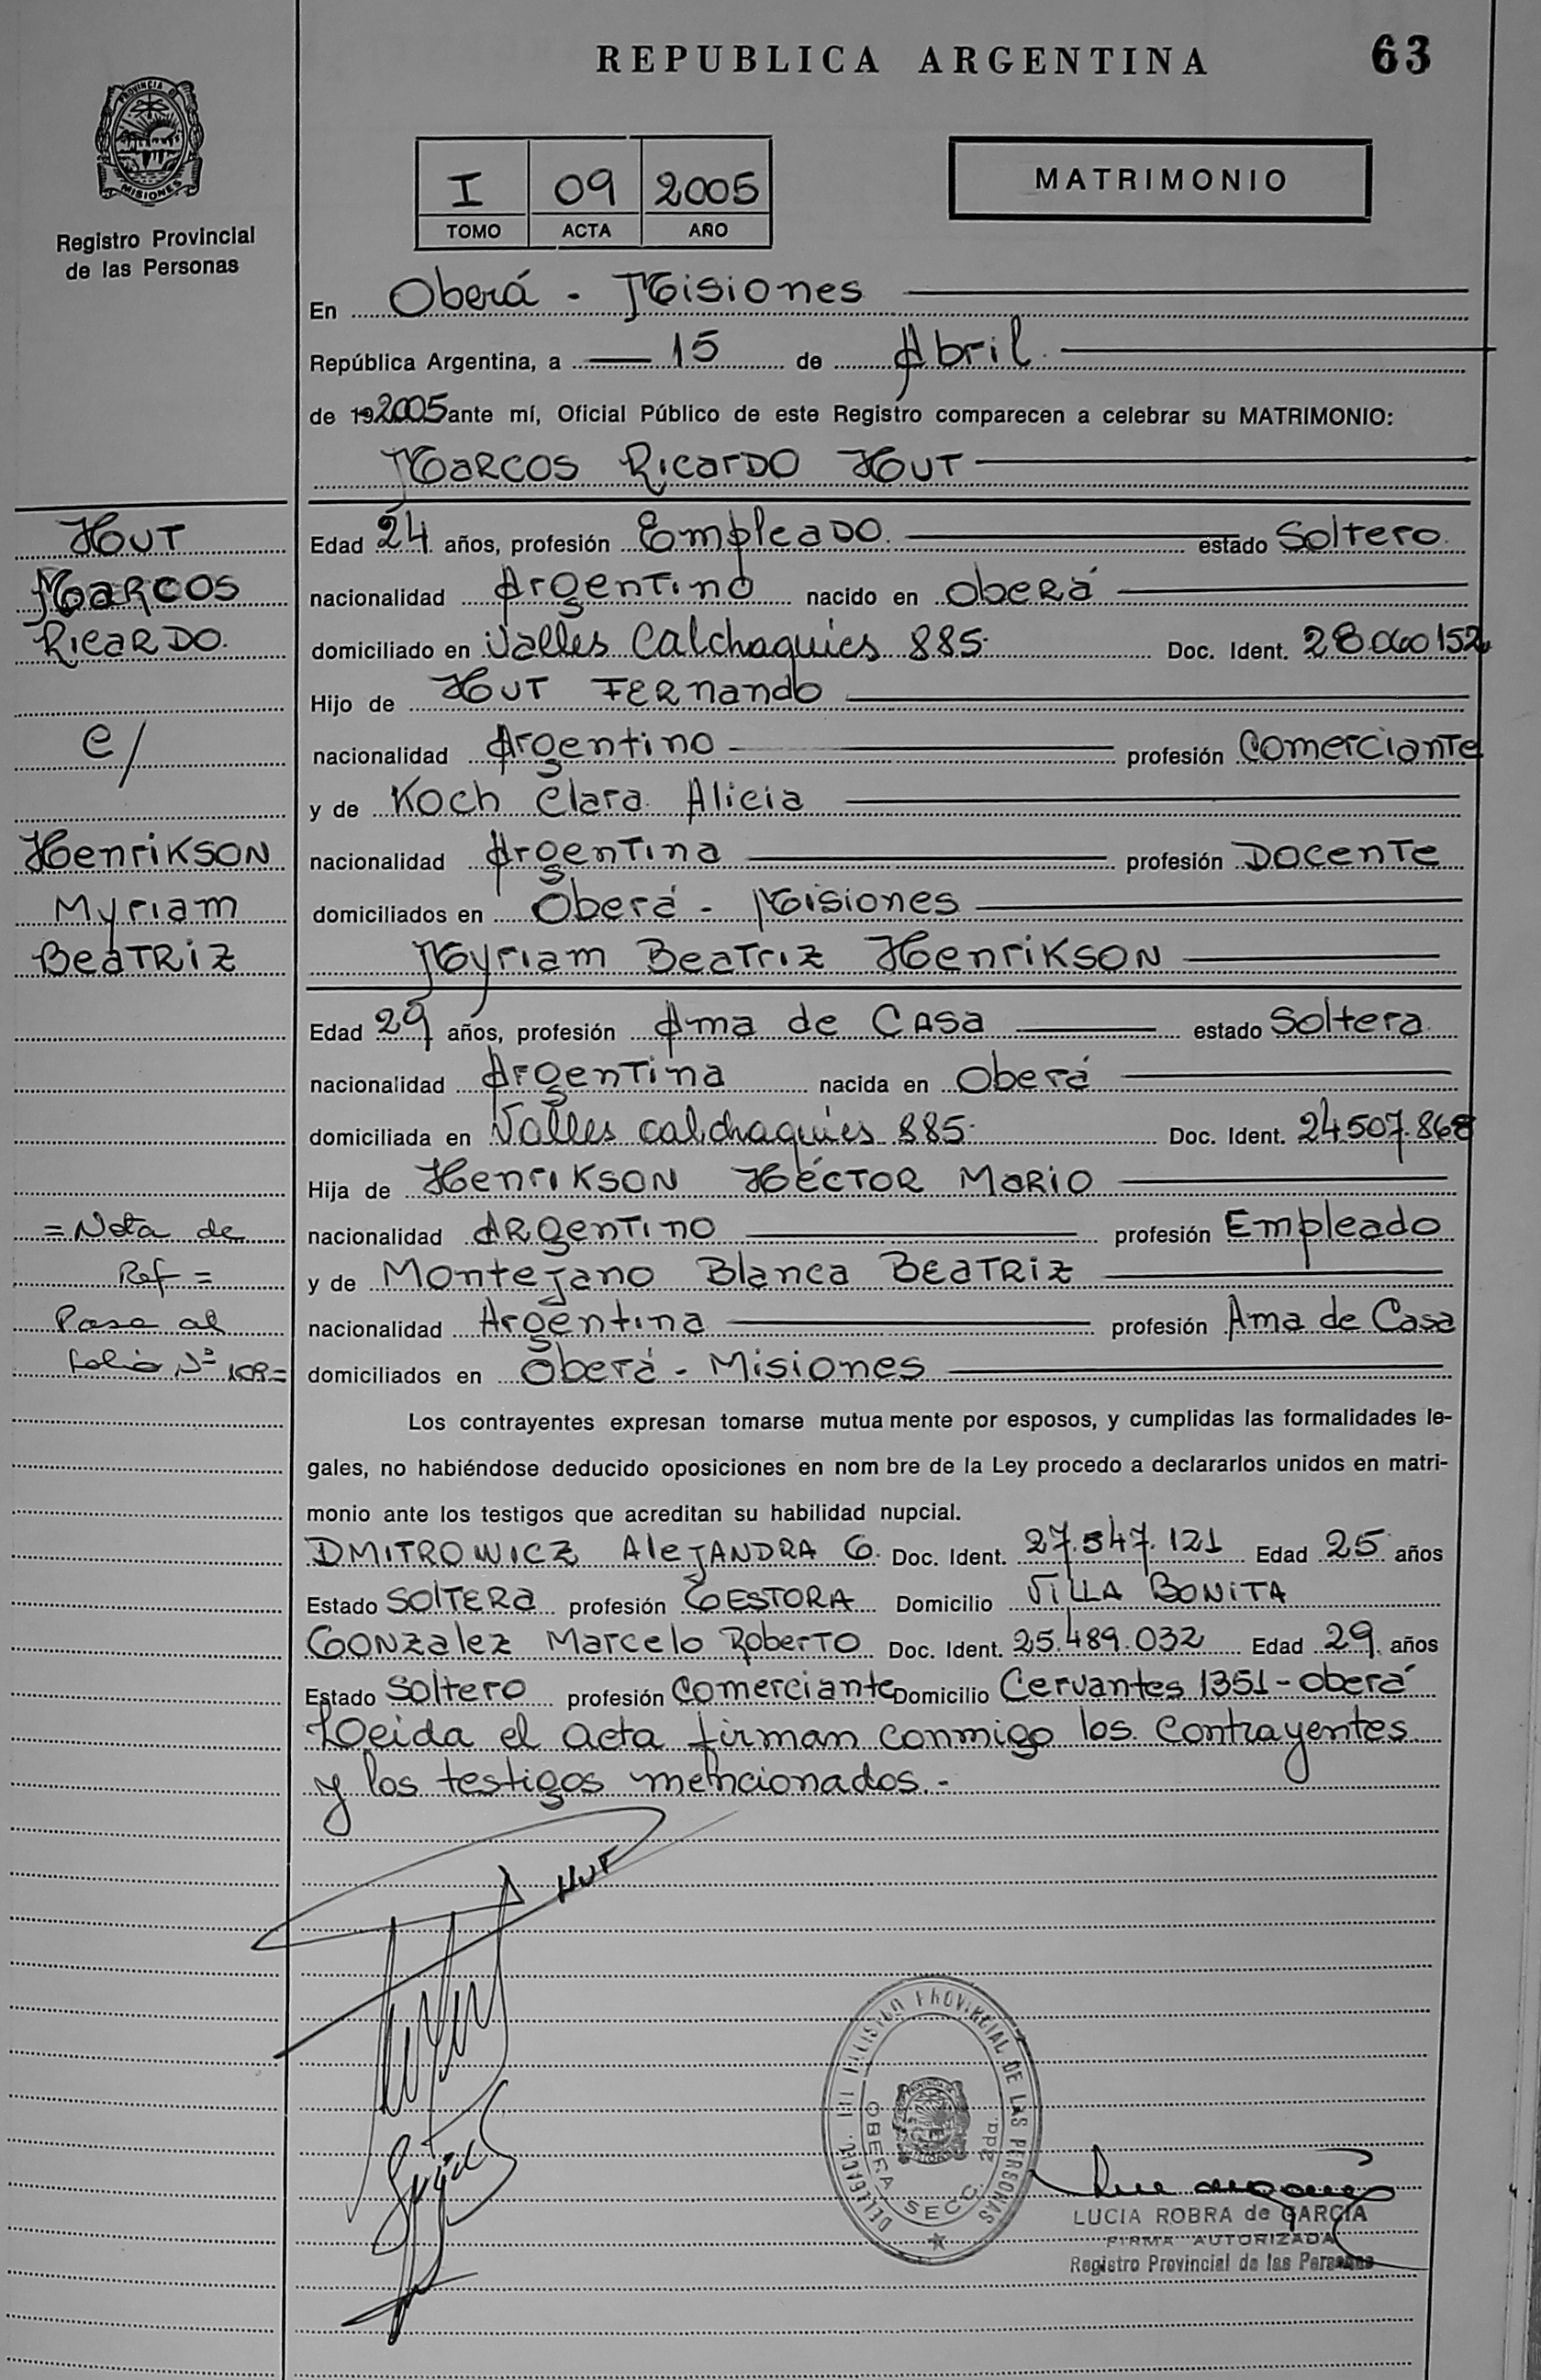 REPUBLICA ARGENTINA
63
PROVINCIA DE
MISIONES
Registro Provincial
de las Personas
I 09 2005
TOMO ACTA AÑO
MATRIMONIO
En Oberá - Misiones
República Argentina, a 15 de Abril
de 192005 ante mí, Oficial Público de este Registro comparecen a celebrar su MATRIMONIO:
Marcos Ricardo Hut
Hut
Marcos
Ricardo.
c/
Henrikson
Myriam
Beatriz
Edad 24 años, profesión Empleado. estado Soltero.
nacionalidad Argentino nacido en Oberá
domiciliado en Valles Calchaquies 885. Doc. Ident. 28.060152
Hijo de Hut Fernando
nacionalidad Argentino profesión Comerciante
y de Koch Clara Alicia
nacionalidad Argentina profesión Docente
domiciliados en Oberá - Misiones
Myriam Beatriz Henrikson
Edad 29 años, profesión Ama de Casa estado Soltera
nacionalidad Argentina nacida en Oberá
domiciliada en Valles calchaquies 885. Doc. Ident. 24.507.868
Hija de Henrikson Héctor Mario
nacionalidad Argentino profesión Empleado
y de Montejano Blanca Beatriz
nacionalidad Argentina profesión Ama de Casa
domiciliados en Oberá - Misiones
= Nota de
Ref =
Pasa al
folio Nº 109=
Los contrayentes expresan tomarse mutua mente por esposos, y cumplidas las formalidades le-
gales, no habiéndose deducido oposiciones en nom bre de la Ley procedo a declararlos unidos en matri-
monio ante los testigos que acreditan su habilidad nupcial.
DMITROWICZ Alejandra G. Doc. Ident. 27.547.121 Edad 25 años
Estado Soltera profesión GESTORA Domicilio Villa Bonita
Gonzalez Marcelo Roberto Doc. Ident. 25.489.032 Edad 29. años
Estado Soltero profesión Comerciante Domicilio Cervantes 1351 - Oberá
Leida el acta firman conmigo los contrayentes
y los testigos mencionados.-
HUT
DELEGAC. DEL REGISTRO PROVINCIAL DE LAS PERSONAS
OBERA SECC. 2da.
LUCIA ROBRA de GARCIA
FIRMA AUTORIZADA
Registro Provincial de las Personas